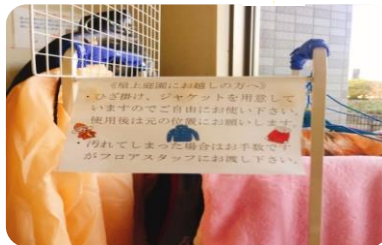 《屋上庭園にお越しの方へ》
・ひざ掛け、ジャケットを用意して
いますのでご自由にお使い下さい。
使用後は元の位置にお願いします。
・汚れてしまった場合はお手数です
がフロアスタッフにお渡し下さい。